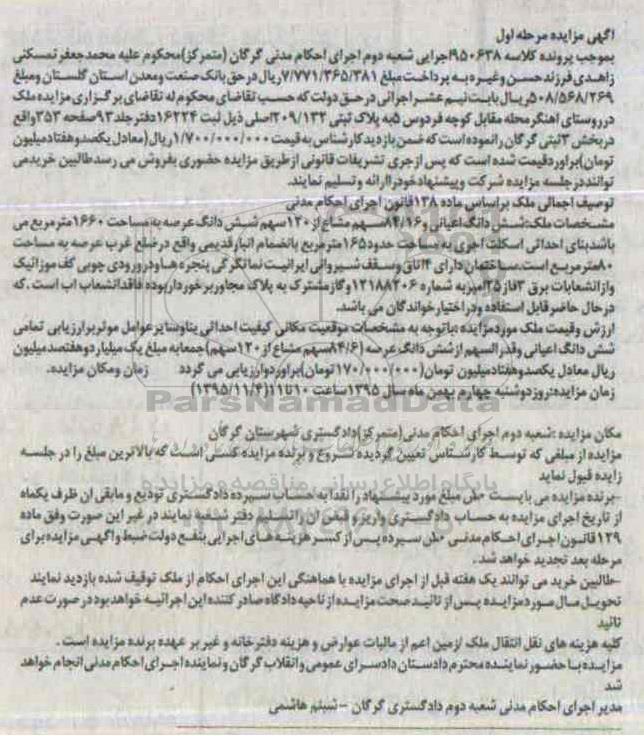 آگهی مزایده مرحله اول
بموجب پرونده کلاسه ۹۵۰۶۳۸اجرایی شعبه دوم اجرای احکام مدنی گرگان (متمرکز)محکوم علیه محمدجعفر تمسکنی
زاهدی فرزند حسن وغیره به پرداخت مبلغ ۷/۷۷۱/۳۶۵/۳۸۱ریال در حق بانک صنعت ومعدن استان گلستان ومبلغ
۵۰۸/۵۶۸/۲۶۹ریال بابت نیم عشر اجرائی در حق دولت که حسب تقاضای محکوم له تقاضای برگزاری مزایده ملک
در روستای اهنگر محله مقابل کوچه فردوس ۵به پلاک ثبتی ۲۰۹/۱۳۲اصلی ذیل ثبت ۱۶۲۲۴دفتر جلد۹۳صفحه ۳۵۳واقع
در بخش ۳ثبتی گرگان رانموده است که ضمن بازدید کارشناس به قیمت ۱/۷۰۰/۰۰۰/۰۰۰ریال(معادل یکصدوهفتادمیلیون
تومان)براوردقیمت شده است که پس ازجری تشریفات قانونی ازطریق مزایده حضوری بفروش می رسدطالبین خریدمی
توانند در جلسه مزایده شرکت وپیشنهادخودراارائه وتسلیم نمایند.
توصیف اجمالی ملک براساس ماده ۱۳۸قانون اجرای احکام مدنی
مشخصات ملک:شش دانگ اعیانی و۸۴/۱۶سهم مشاع از۱۲۰سهم شش دانگ عرصه به مساحت ۱۶۶۰مترمربع می
باشدبنای احداثی اسکلت اجری به مساحت حدود۱۶۵مترمربع بانضمام انبارقدیمی واقع درضلع غرب عرصه به مساحت
۸۰مترمربع است.ساختمان دارای ۴اتاق وسقف شیروانی ایرانیت نماگرگی پنجره هاودرورودی چوبی کف موزائیک
وازانشعابات برق ۳فاز۲۵امپربه شماره ۱۲۱۸۸۲۰۶وگازمشترک به پلاک مجاوربرخورداربوده فاقدانشعاب اب است .که
درحال حاضرقابل استفاده ودراختیارخواندگان می باشد.
ارزش وقیمت ملک موردمزایده :باتوجه به مشخصات موقعیت مکانی کیفیت احداثی بناوسایرعوامل موثربرارزیابی تمامی
شش دانگ اعیانی وقدرالسهم ازشش دانگ عرصه (۸۴/۶سهم مشاع از۱۲۰سهم)جمعابه مبلغ یک میلیاردوهفتصدمیلیون
ریال معادل یکصدوهفتادمیلیون تومان(۱۷۰/۰۰۰/۰۰۰تومان)براوردوارزیابی می گردد زمان ومکان مزایده.
زمان مزایده:روزدوشنبه چهارم بهمن ماه سال ۱۳۹۵ساعت ۱۰تا۱۱(۱۳۹۵/۱۱/۴)
ParsNamadData
مکان مزایده :شعبه دوم اجرای احکام مدنی(متمرکز)دادگستری شهرستان گرگان
مزایده از مبلغی که توسط کارشناس تعیین گردیده شروع و برنده مزایده کسی است که بالاترین مبلغ را در جلسه
زایده قبول نماید
-برنده مزایده می بایست ۱۰% مبلغ مورد پیشنهاد را نقدا به حساب سپرده دادگستری تودیع و مابقی ان ظرف یکماه
از تاریخ اجرای مزایده به حساب دادگستری واریز و فیش ان را تسلیم دفتر شعبه نمایند در غیر این صورت وفق ماده
۱۲۹قانون اجرای احکام مدنی ۱۰% سپرده پس از کسر هزینه های اجرایی بنفع دولت ضبط و اگهی مزایده برای
مرحله بعد تجدید خواهد شد .
-طالبین خرید می توانند یک هفته قبل از اجرای مزایده با هماهنگی این اجرای احکام از ملک توقیف شده بازدید نمایند
تحویل مال مورد مزایده پس از تائید صحت مزایده از ناحیه دادگاه صادر کننده این اجرائیه خواهد بود در صورت عدم
تائید
کلیه هزینه های نقل انتقال ملک /زمین اعم از مالیات عوارض و هزینه دفترخانه و غیر بر عهده برنده مزایده است .
مزایده با حضور نماینده محترم دادستان دادسرای عمومی وانقلاب گرگان و نماینده اجرای احکام مدنی انجام خواهد
شد
مدیر اجرای احکام مدنی شعبه دوم دادگستری گرگان – شبنم هاشمی